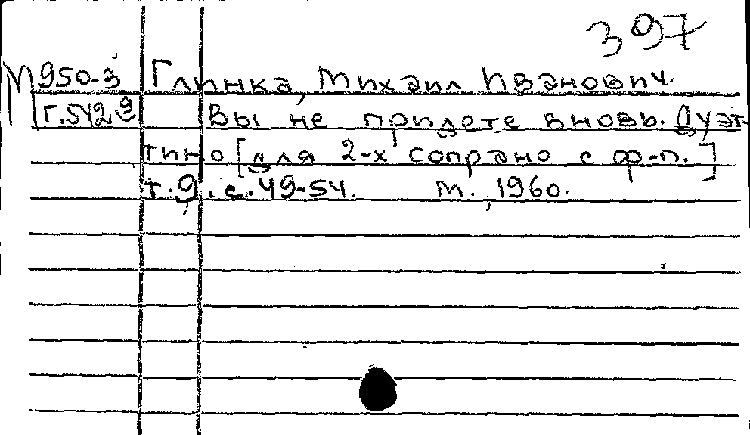 397
М950-3 Глинка, Михаил Иванович.
Г.542 9 Вы не придете вновь. Дуэт-
тино [для 2-х сопрано с ф-п.]
т. 9. с. 49-54. М., 1960.